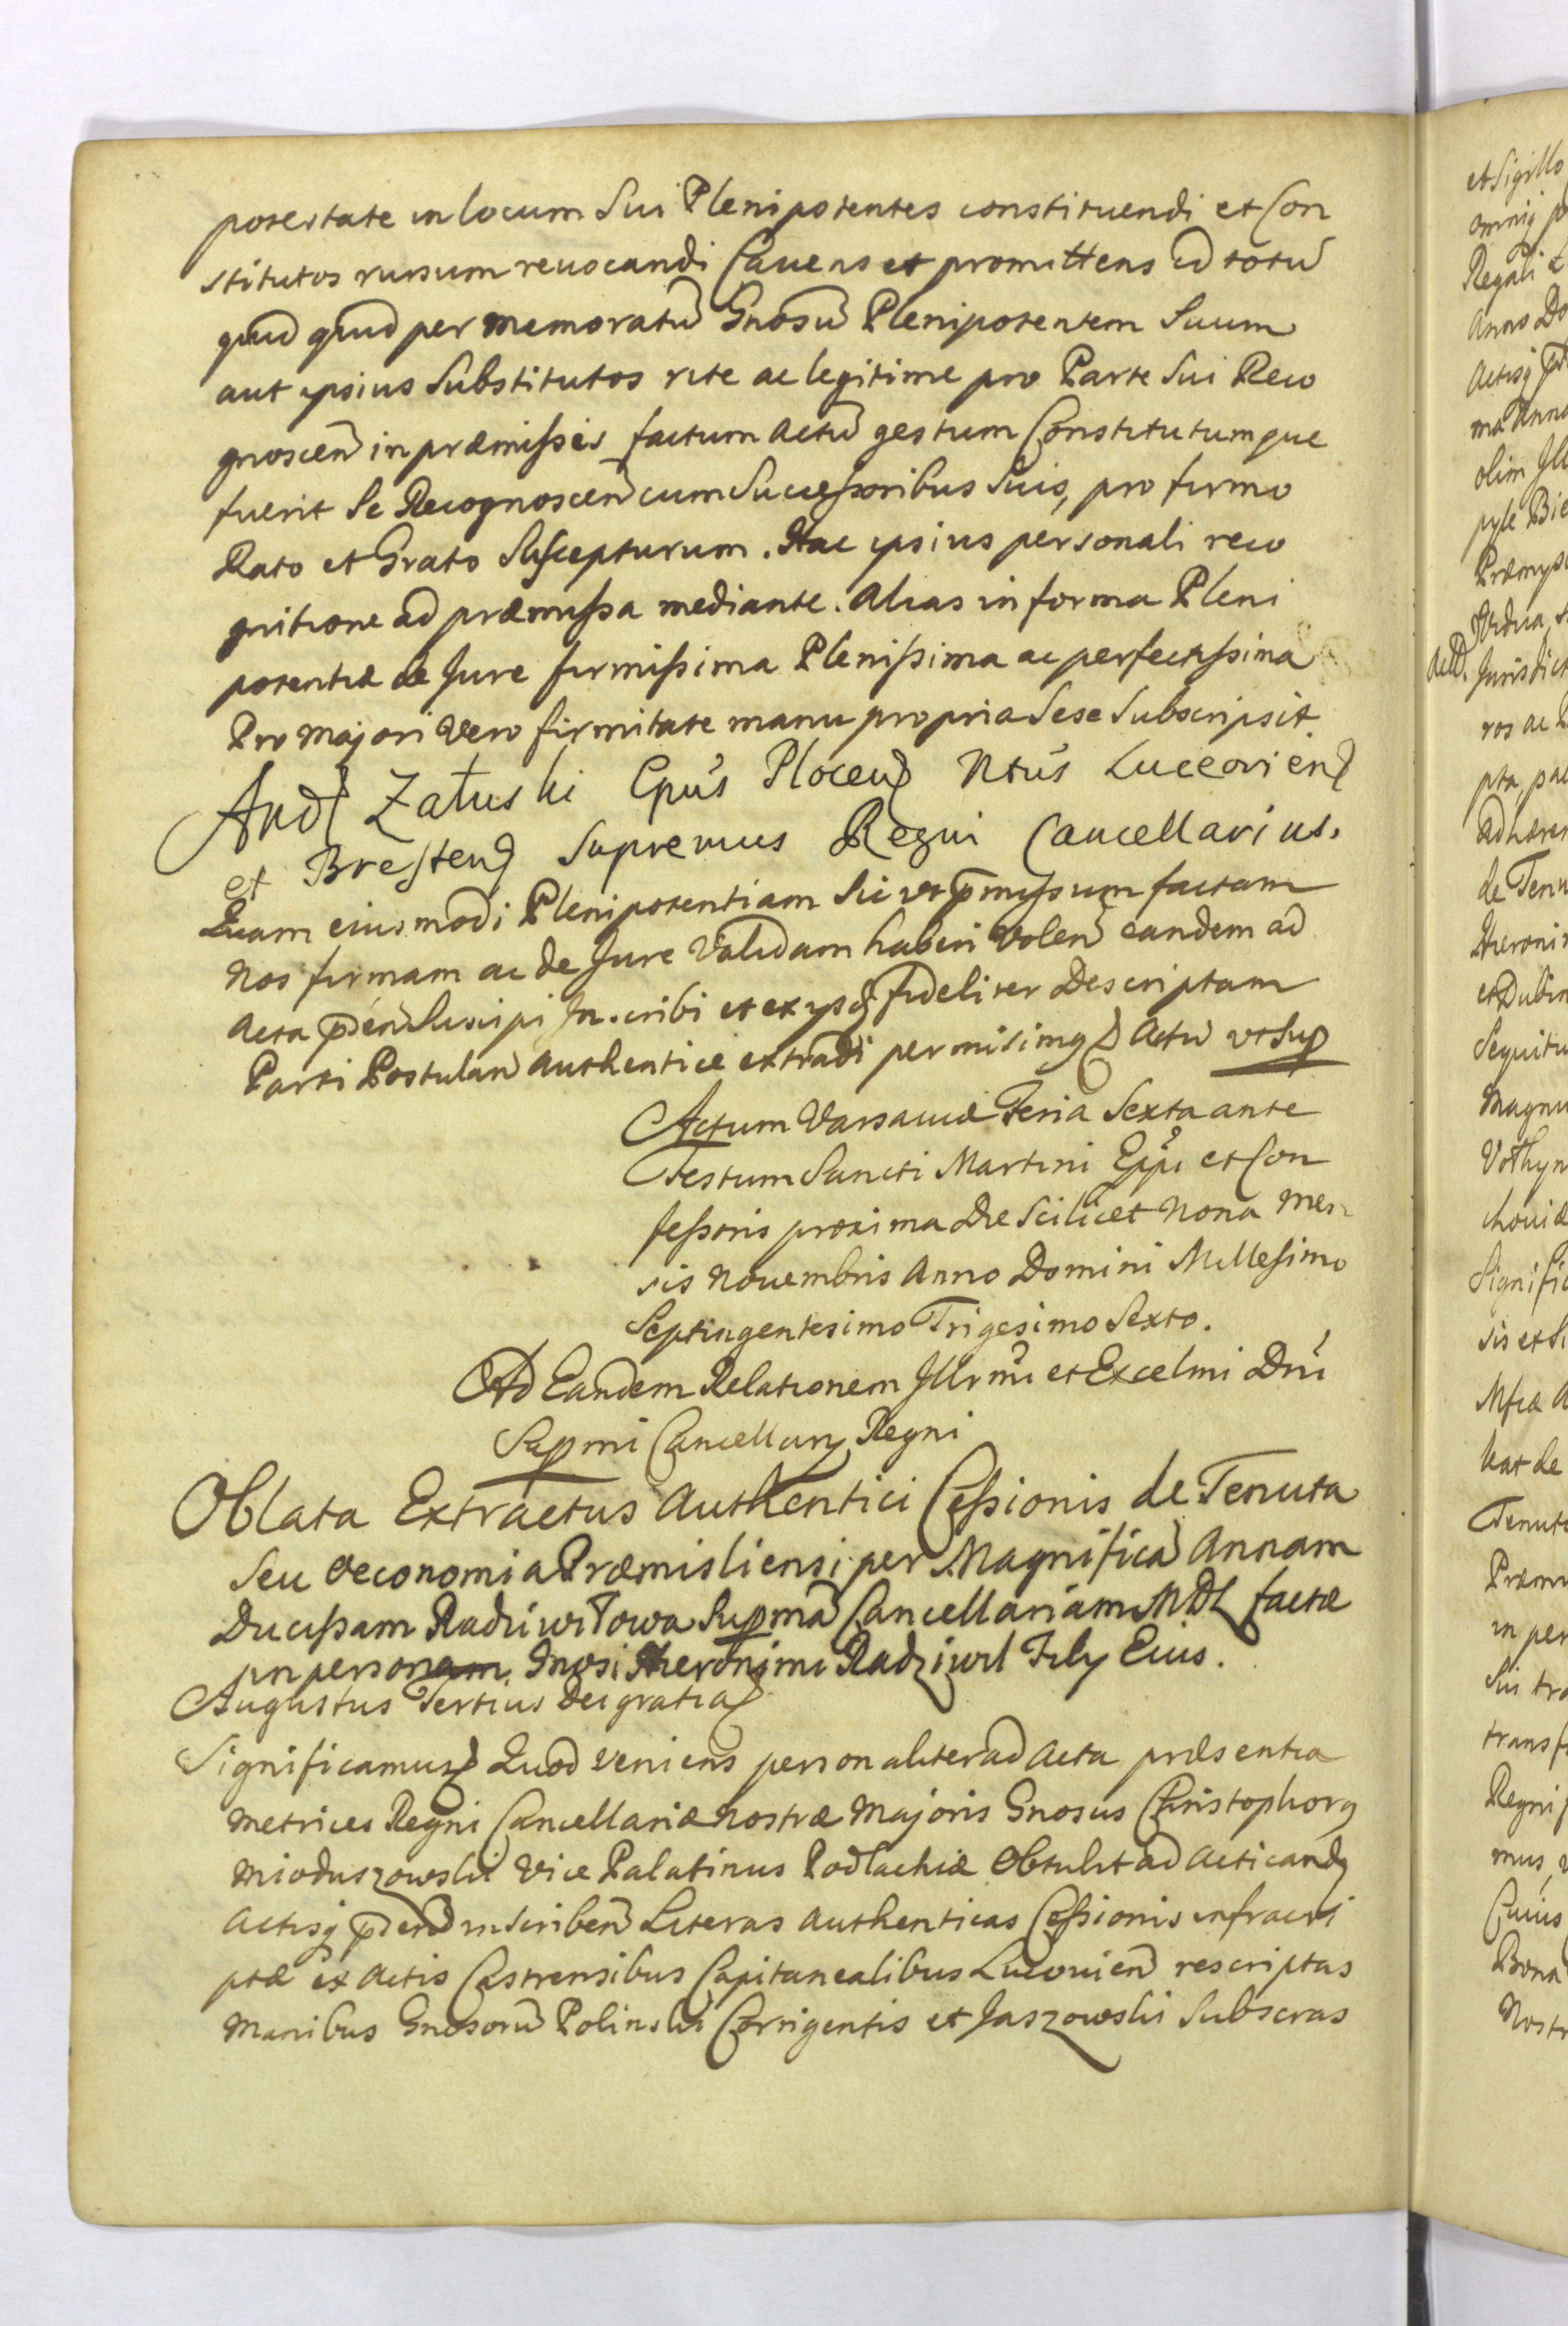 potestate in locum Sui Plenipotentes constituendi et Con
stitutos rursum reuocandi Cauens et promittens id totū
quid quid per memoratū Gnosū Plenipotentem Suum
aut ipsius Substitutos rite ac legitime pro Parte Sui Reco
gnoscen in præmißis factum actū gestum Constitutumque
fuerit Se Recognoscen cum Succeßoribus Suis, pro firmo
Rato et Grato Suscepturum. Hac ipsius personali reco
gnitione ad præmißa mediante. Alias in forma Pleni
potentiæ de Jure firmißima Plenißima ac perfectißima
Pro Majori Vero firmitate manu propria Sese Subscripsit
And Załuski Epūs Plocen Ntūs Luceorien
et Bresten Supremus Regni Cancellarius.
Quam eiusmodi Plenipotentiam Sic vt pmißum factam
Nos firmam ac de Jure Validam haberi Volen eandem ad
Acta pñen Suscipi Inscribi et ex ysq fideliter Descriptam
Parti Postulan Authentice extradi permisimq Actū vt Sup
Actum Varsauiæ Feria Sexta ante
Festum Sancti Martini Eppi et Con
feßoris proxima Die Scilicet Nona Men
sis Nouembris Anno Domini Millesimo
Septingentesimo Trigesimo Sexto.
Ad Eandem Relationem Jllrmi et Excelmi Dni
Supmi Cancellary Regni
Oblata Extractus Authentici Ceßionis de Tenuta
Seu Oeconomia Præmisliensi per Magnificā Annam
Ducißam Radziwiłowa Supmā Cancellariam MDL factæ
in personam Gnosi Hieronimi Radziwil Fily Eius.
Augustus Tertius Dei gratia
Significamus Quod veniens personaliter ad Acta præsentia
Metrices Regni Cancellariæ Nostræ Majoris Gnosus Christophorq
Mioduszowski Vice Palatinus Podlachiæ Obtulit ad Acticandq
Actisq pñen inscriben Literas Authenticas Ceßionis infrascri
ptæ ex Actis Castrensibus Capitanealibus Lucouien rescriptas
Manibus Gnosorū Polinski Corrigentis et Jaszowski Subscras
et Sigillo
Regali
Anno Do
olim Jll
Jurisdict
ros ac
adhæren
de Tenu
Sequitu
Magnu
Signific
Tenuta
in per
Sui tra
transf
Regni
mus
Cuius
Bona
Nostr